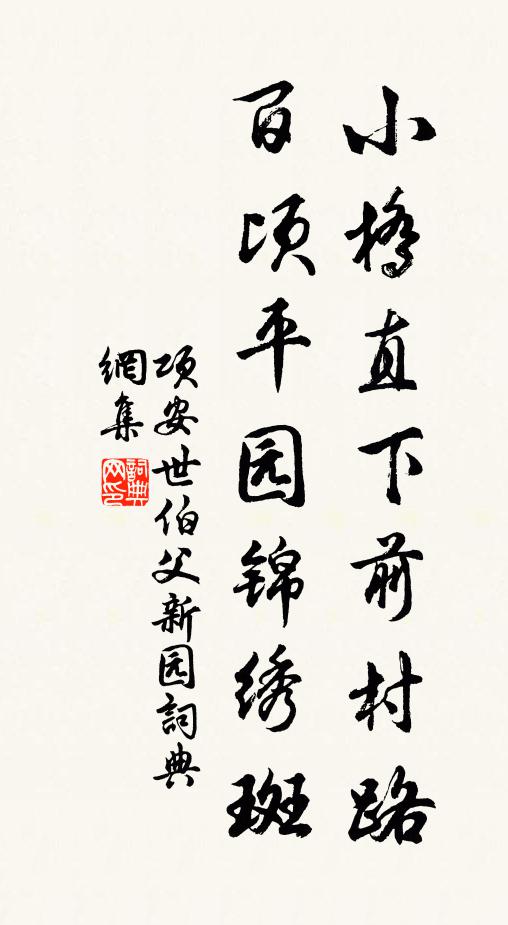 小桥直下前村路
百顷平园锦绣斑
项安世伯父新园詞典
網集
詞典
网印